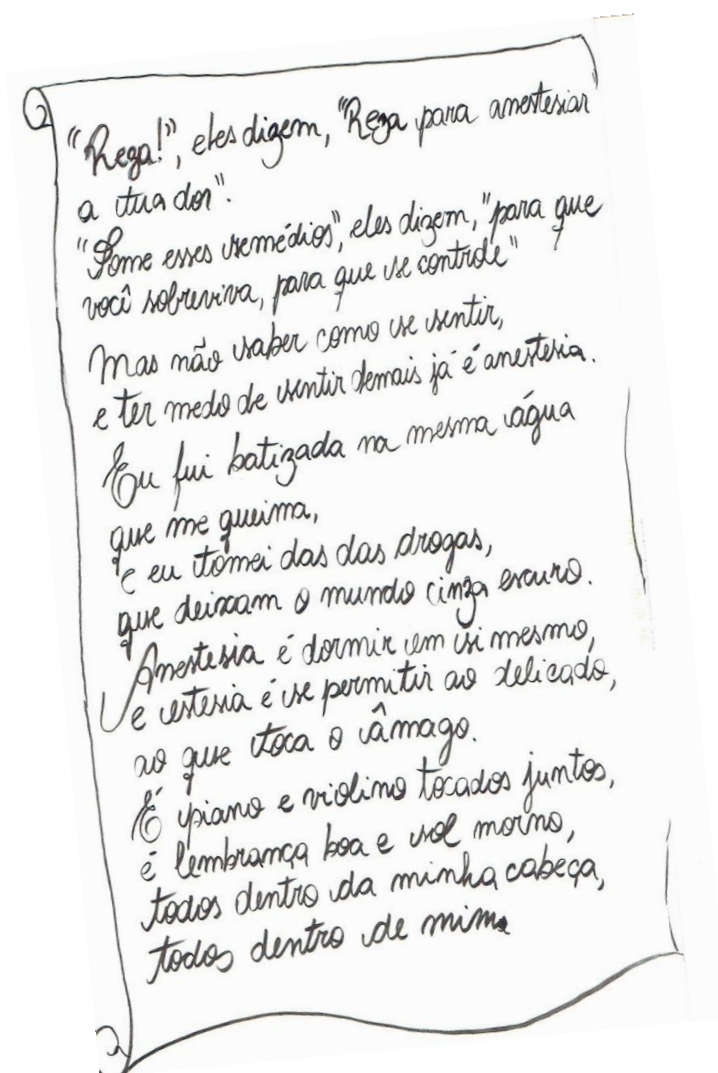 "Reza!", eles dizem, "Reza para anestesiar
a tua dor".
"Tome esses remédios", eles dizem, "para que
você sobreviva, para que se controle"
Mas não saber como se sentir,
e ter medo de sentir demais já é anestesia.
Eu fui batizada na mesma água
que me queima,
e eu tomei das das drogas,
que deixam o mundo cinza escuro.
Anestesia é dormir em si mesmo,
e estesia é se permitir ao delicado,
ao que toca o âmago.
É piano e violino tocados juntos,
é lembrança boa e sol morno,
todos dentro da minha cabeça,
todos dentro de mim.